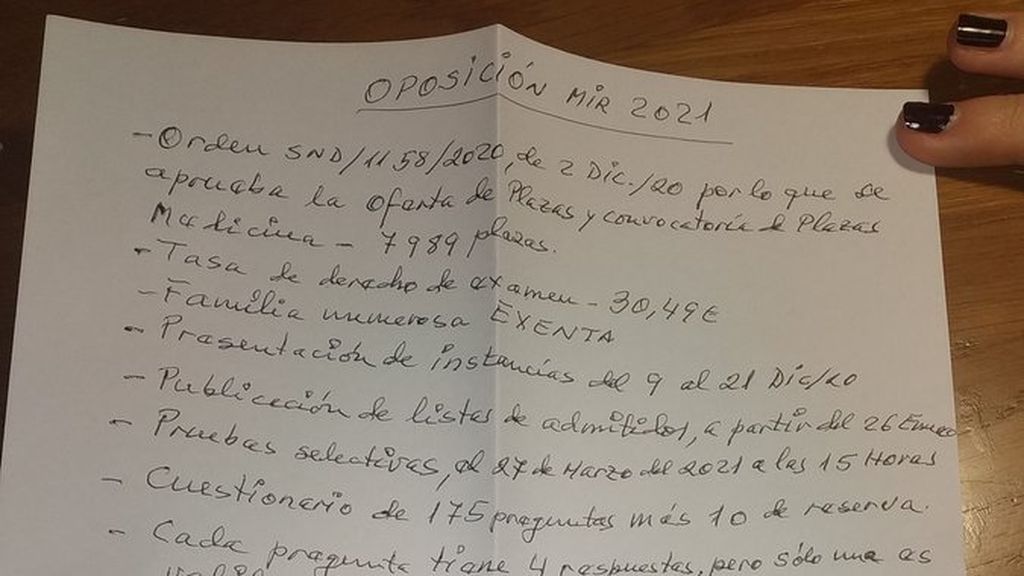 OPOSICIÓN MIR 2021
- Orden SND/1158/2020, de 2 Dic./20 por lo que se
aprueba la Oferta de Plazas y convocatoria de Plazas
Medicina - 7989 plazas.
- Tasa de derecho de examen - 30,49€
- Familia numerosa EXENTA
- Presentación de instancias del 9 al 21 Dic/20
- Publicación de listas de admitidos, a partir del 26 Enero
- Pruebas selectivas, el 27 de Marzo del 2021 a las 15 Horas
- Cuestionario de 175 preguntas más 10 de reserva.
- Cada pregunta tiene 4 respuestas, pero sólo una es